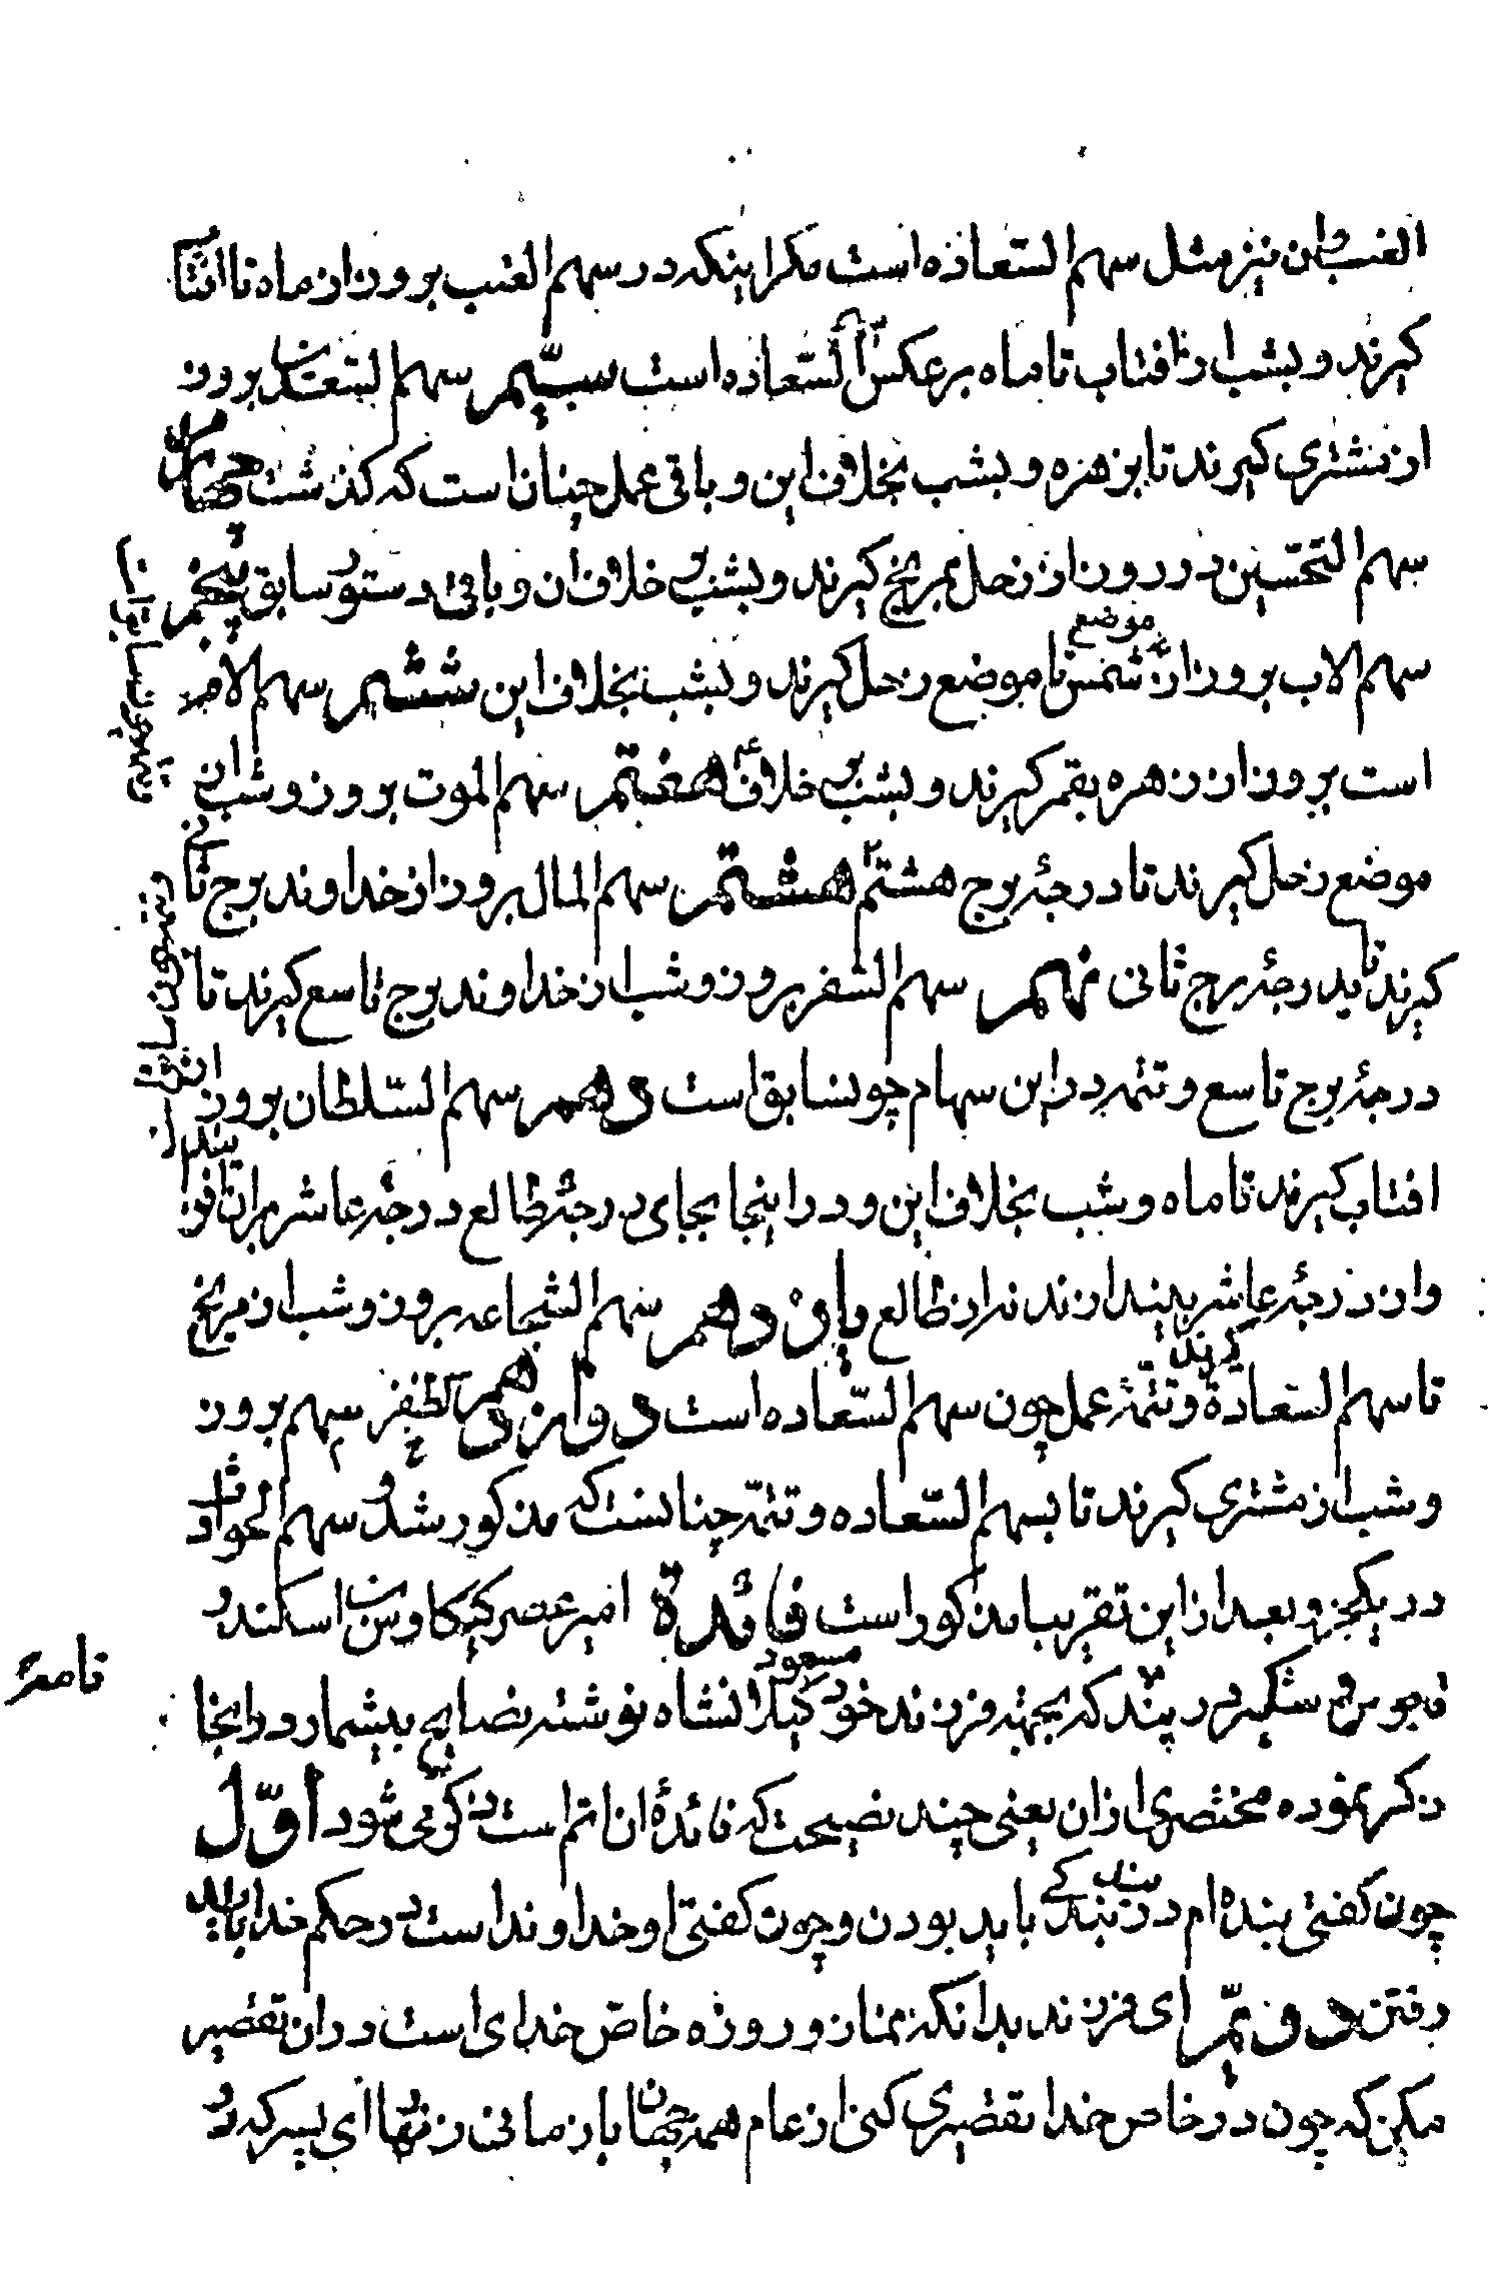 الغیب و ان نیز مثل سهم السّعاده است مکر اینکه در سهم الغیب بروز از ماه تا افتاب
کیرند و بشب از افتاب تا ماه برعکس السّعاده است سیّم سهم السعدین بروز
از مشتری کیرند تا بزهره و بشب بخلاف این و باقی عمل چنان است که کذشت چهارم
سهم النّحسین در روز از زحل بمریخ کیرند و بشب بر خلاف ان و باقی دستور سابق پنجم
سهم الاب بروز از شمس تا موضع زحل کیرند و بشب بخلاف این ششم سهم الام
موضع
است بروز از زهره بقمر کیرند و بشب بر خلاف هفتم سهم الموت بروز و شب از
موضع زحل کیرند تا درجهٔ برج هشتم هشتم سهم المال بروز از خداوند برج ثانی
کیرند تا بدرجهٔ برج ثانی نهم سهم السفر بروز و شب از خداوند برج تاسع کیرند تا
درجهٔ برج تاسع و تتمه در این سهام چون سابق است دهم سهم السّلطان بروز از
افتاب کیرند تا ماه و شب بخلاف این و در اینجا بجای درجهٔ طالع درجهٔ عاشر بران افز
وان از درجهٔ عاشر بیندازند نه از طالع یازدهم سهم الشجاعه بروز و شب از مریخ
کیرند
تا سهم السعادة و تتمّهٔ عمل چون سهم السّعاده است دوازدهم الظفر سهم بروز
و شب از مشتری کیرند تا بسهم السّعاده و تتمّه چنانست که مذکور شد و سهم الحوادث
در یکجزو بعد از این تقریبا مذکور است فائدة امیر عصر کیکاوس بن اسکندر
قابوس وشمکیر در پند که بجهته فرزند خود کیلانشاه نوشته نصایح بیشمار و در اینجا
نامهٔ
ذکر نموده مختصری از ان یعنی چند نصیحت که فائدهٔ ان اتم است مذکور می شود اوّل
چون کفتی بنده ام در بندکی باید بودن و چون کفتی او خداوند است در حکم خدا باید
رفتن دویّم ای فرزند بدانکه نماز و روزه خاص خدای است در ان تقصیر
مکن که چون در خاص خدا تقصیری کنی از عام همه جهان باز مانی زنهار ای پسر که در